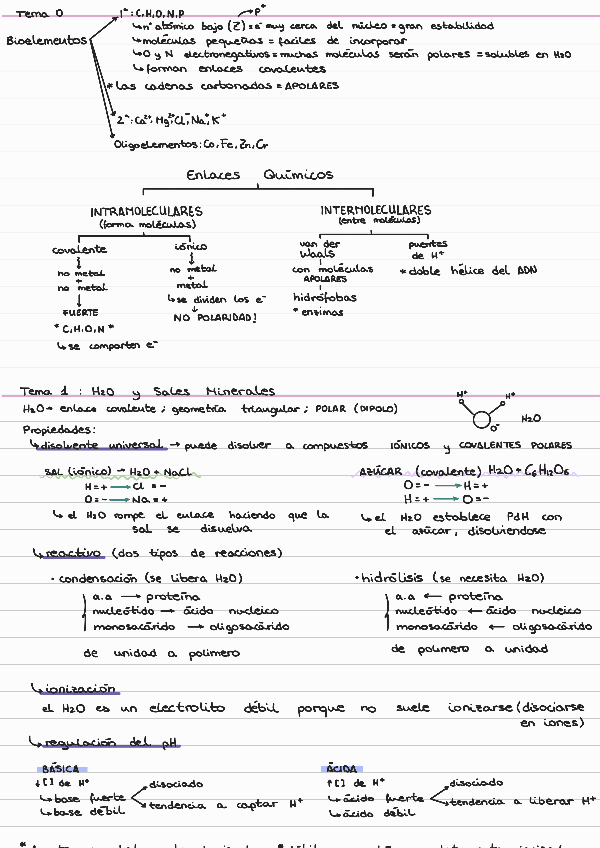 Tema 0
Bioelementos
1ª: C, H, O, N, P
p⁺
↳ nº atómico bajo (Z) = e⁻ muy cerca del núcleo = gran estabilidad
↳ moléculas pequeñas = fáciles de incorporar
↳ O y N electronegativos = muchas moléculas serán polares = solubles en H₂O
↳ forman enlaces covalentes
* las cadenas carbonadas = APOLARES
2ª: Ca²⁺, Mg²⁺, Cl⁻, Na⁺, K⁺
Oligoelementos: Co, Fe, Zn, Cr
Enlaces Químicos
INTRAMOLECULARES
(forma moléculas)
covalente
↓
no metal
+
no metal
↓
FUERTE
* C, H, O, N *
↳ se comparten e⁻
iónico
↓
no metal
+
metal
↳ se dividen los e⁻
↓
NO POLARIDAD!
INTERMOLECULARES
(entre moléculas)
van der
Waals
con moléculas
APOLARES
hidrófobas
* enzimas
puentes
de H⁺
* doble hélice del ADN
Tema 1 : H₂O y Sales Minerales
H₂O → enlace covalente ; geometría triangular ; POLAR (DIPOLO)
H⁺ H⁺
O⁻ H₂O
Propiedades:
↳ disolvente universal → puede disolver a compuestos IÓNICOS y COVALENTES POLARES
SAL (iónico) → H₂O + NaCl
H = + → Cl = -
O = - → Na = +
↳ el H₂O rompe el enlace haciendo que la
sal se disuelva
AZÚCAR (covalente) H₂O + C₆H₁₂O₆
O = - → H = +
H = + → O = -
↳ el H₂O establece PdH con
el azúcar, disolviéndose
↳ reactivo (dos tipos de reacciones)
· condensación (se libera H₂O)
a.a → proteína
nucleótido → ácido nucleico
monosacárido → oligosacárido
de unidad a polímero
· hidrólisis (se necesita H₂O)
a.a ← proteína
nucleótido ← ácido nucleico
monosacárido ← oligosacárido
de polímero a unidad
↳ ionización
el H₂O es un electrolito débil porque no suele ionizarse (disociarse
en iones)
↳ regulación del pH
BÁSICA
↓ [ ] de H⁺
↳ base fuerte
↳ base débil
disociado
tendencia a captar H⁺
ÁCIDA
↑ [ ] de H⁺
↳ ácido fuerte
↳ ácido débil
disociado
tendencia a liberar H⁺